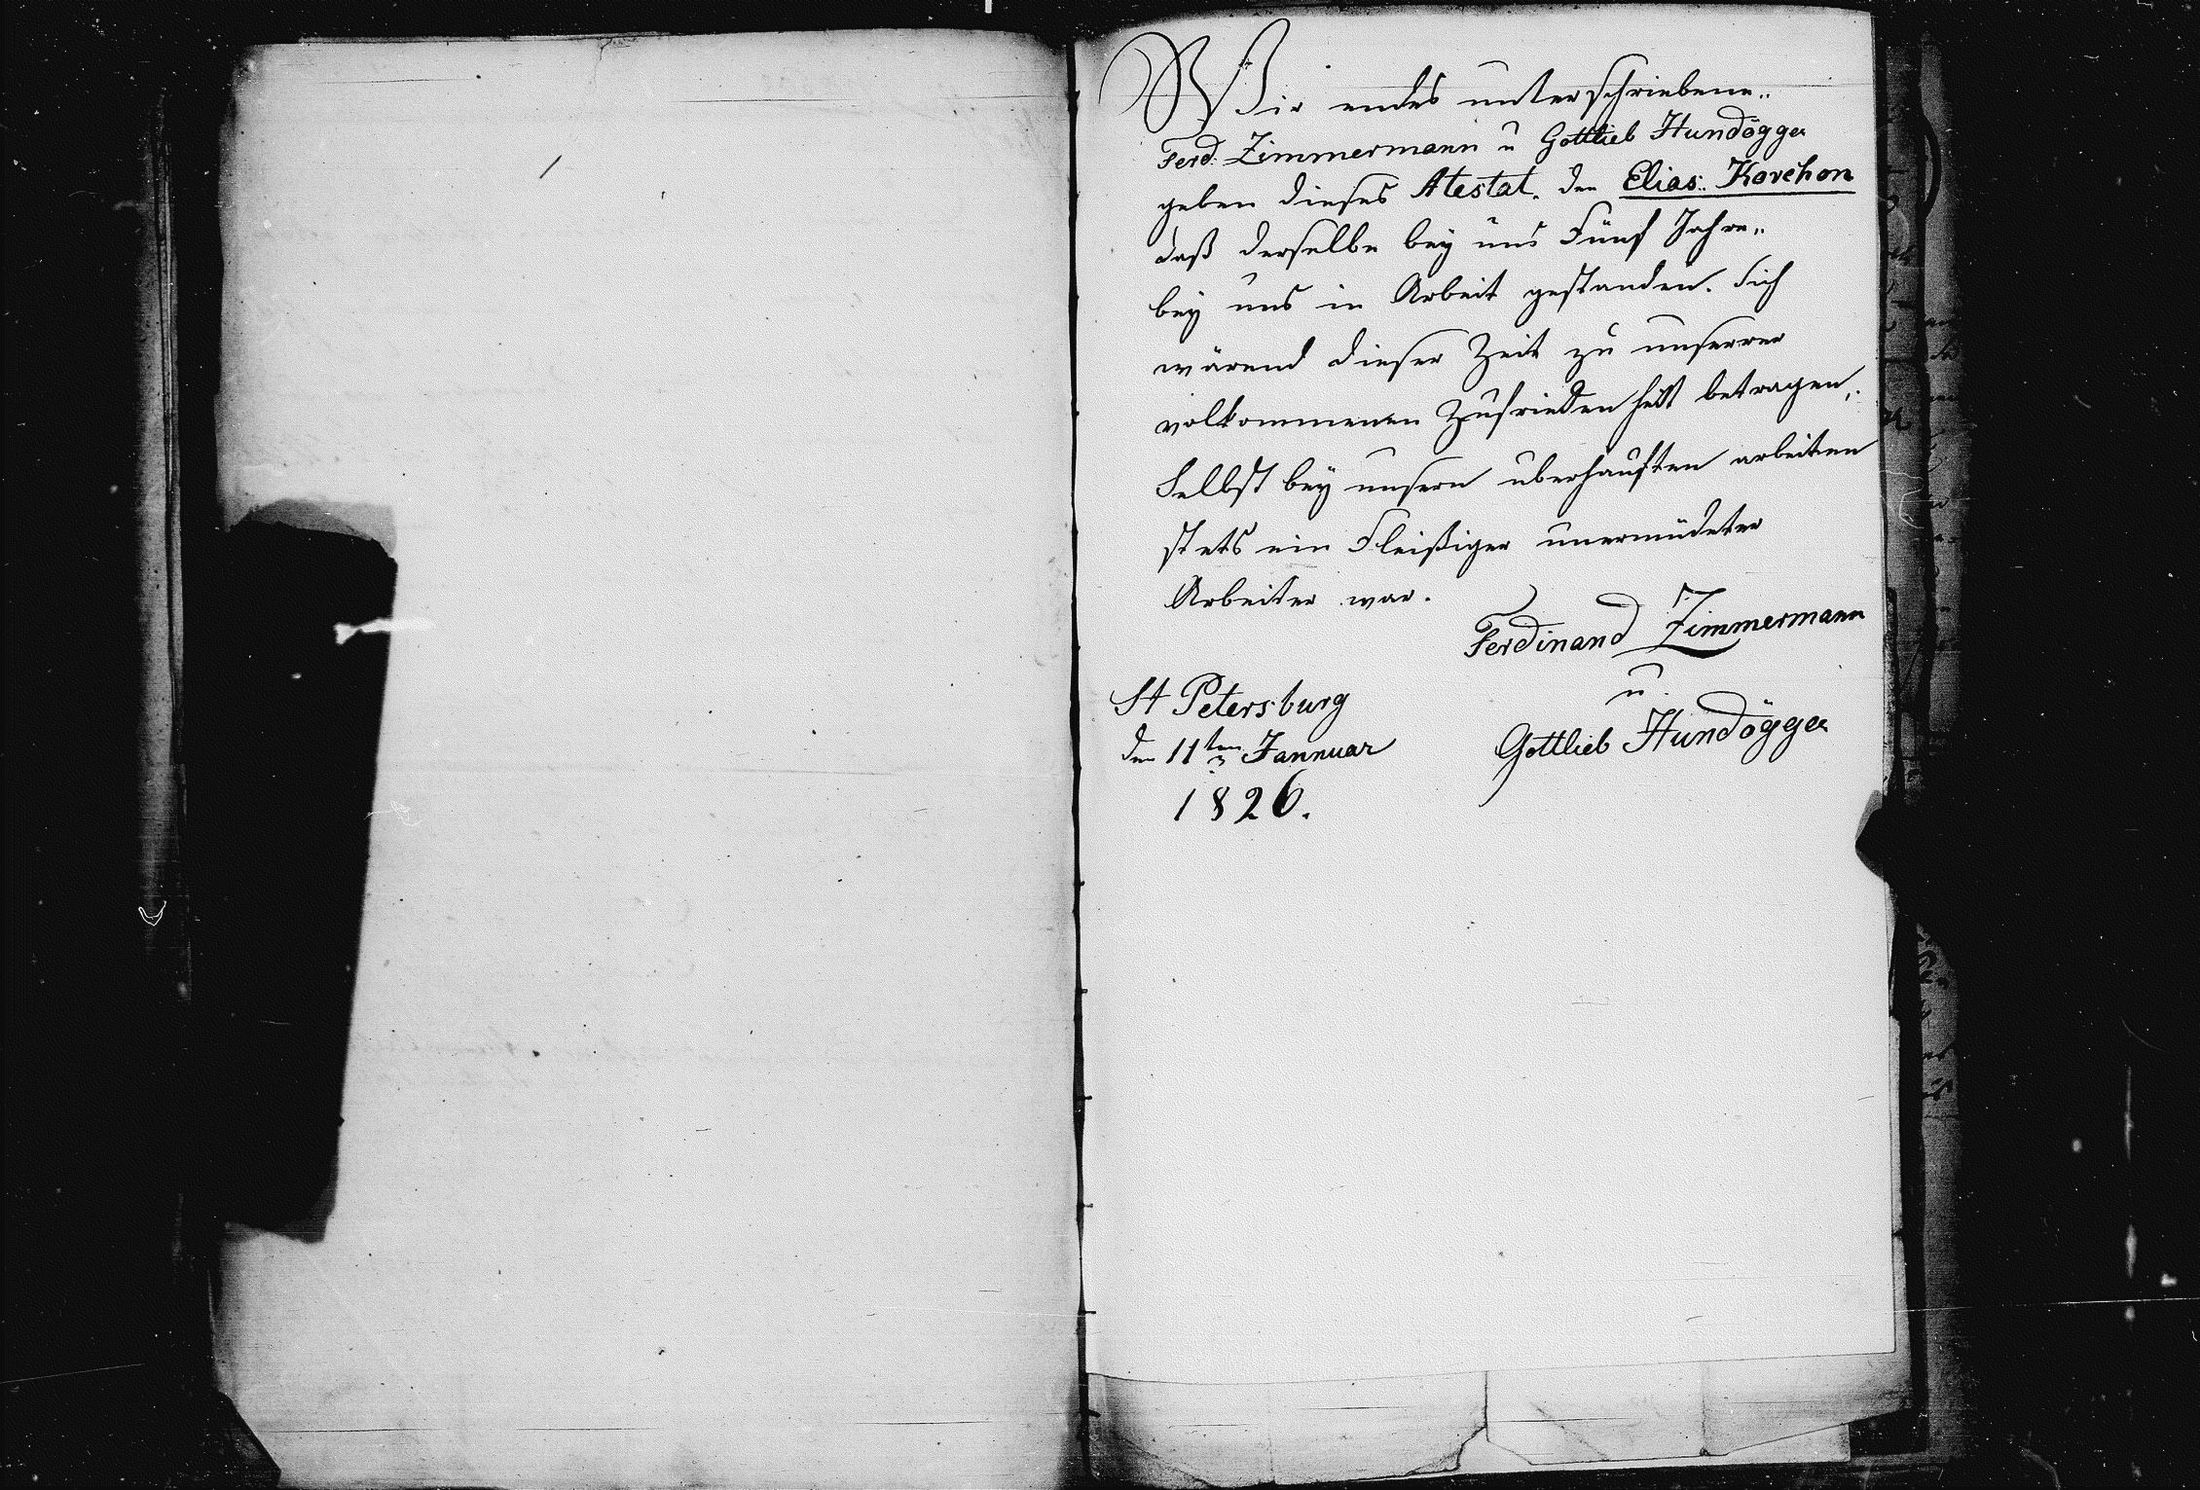 Wir endes unterschriebene..
Ferd. Zimmermann u Gottlieb Hundögger
geben dieses Atestat. den Elias.. Korchon
daß derselbe bey uns Fünf Jahre..
bey uns in Arbeit gestanden. Sich
wärend dieser Zeit zu unserrer
volkommenen Zufriedenheit betragen,.
Selbst bey unsern uberhauften arbeiten
stets ein Fleißiger unermüdeter
Arbeiter war.
Ferdinand Zimmermann
u
Gottlieb Hundögger
St Petersburg
den 11ten Jannuar
1826.